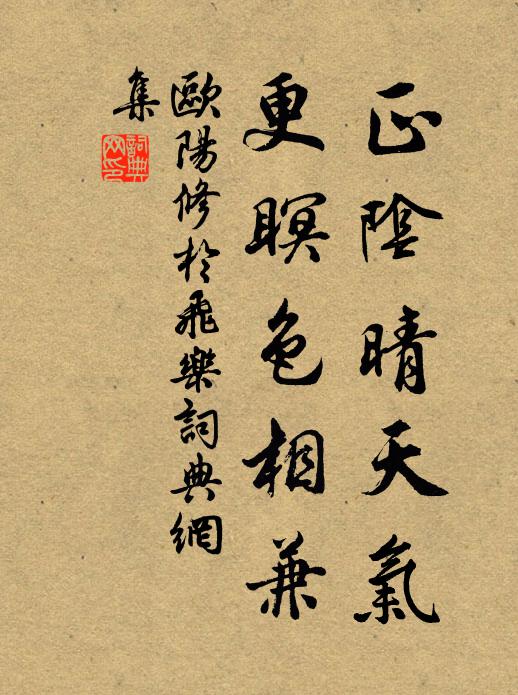 正陰晴天氣
更暝色相兼
歐陽修於飛樂詞典網
集
詞典
网印